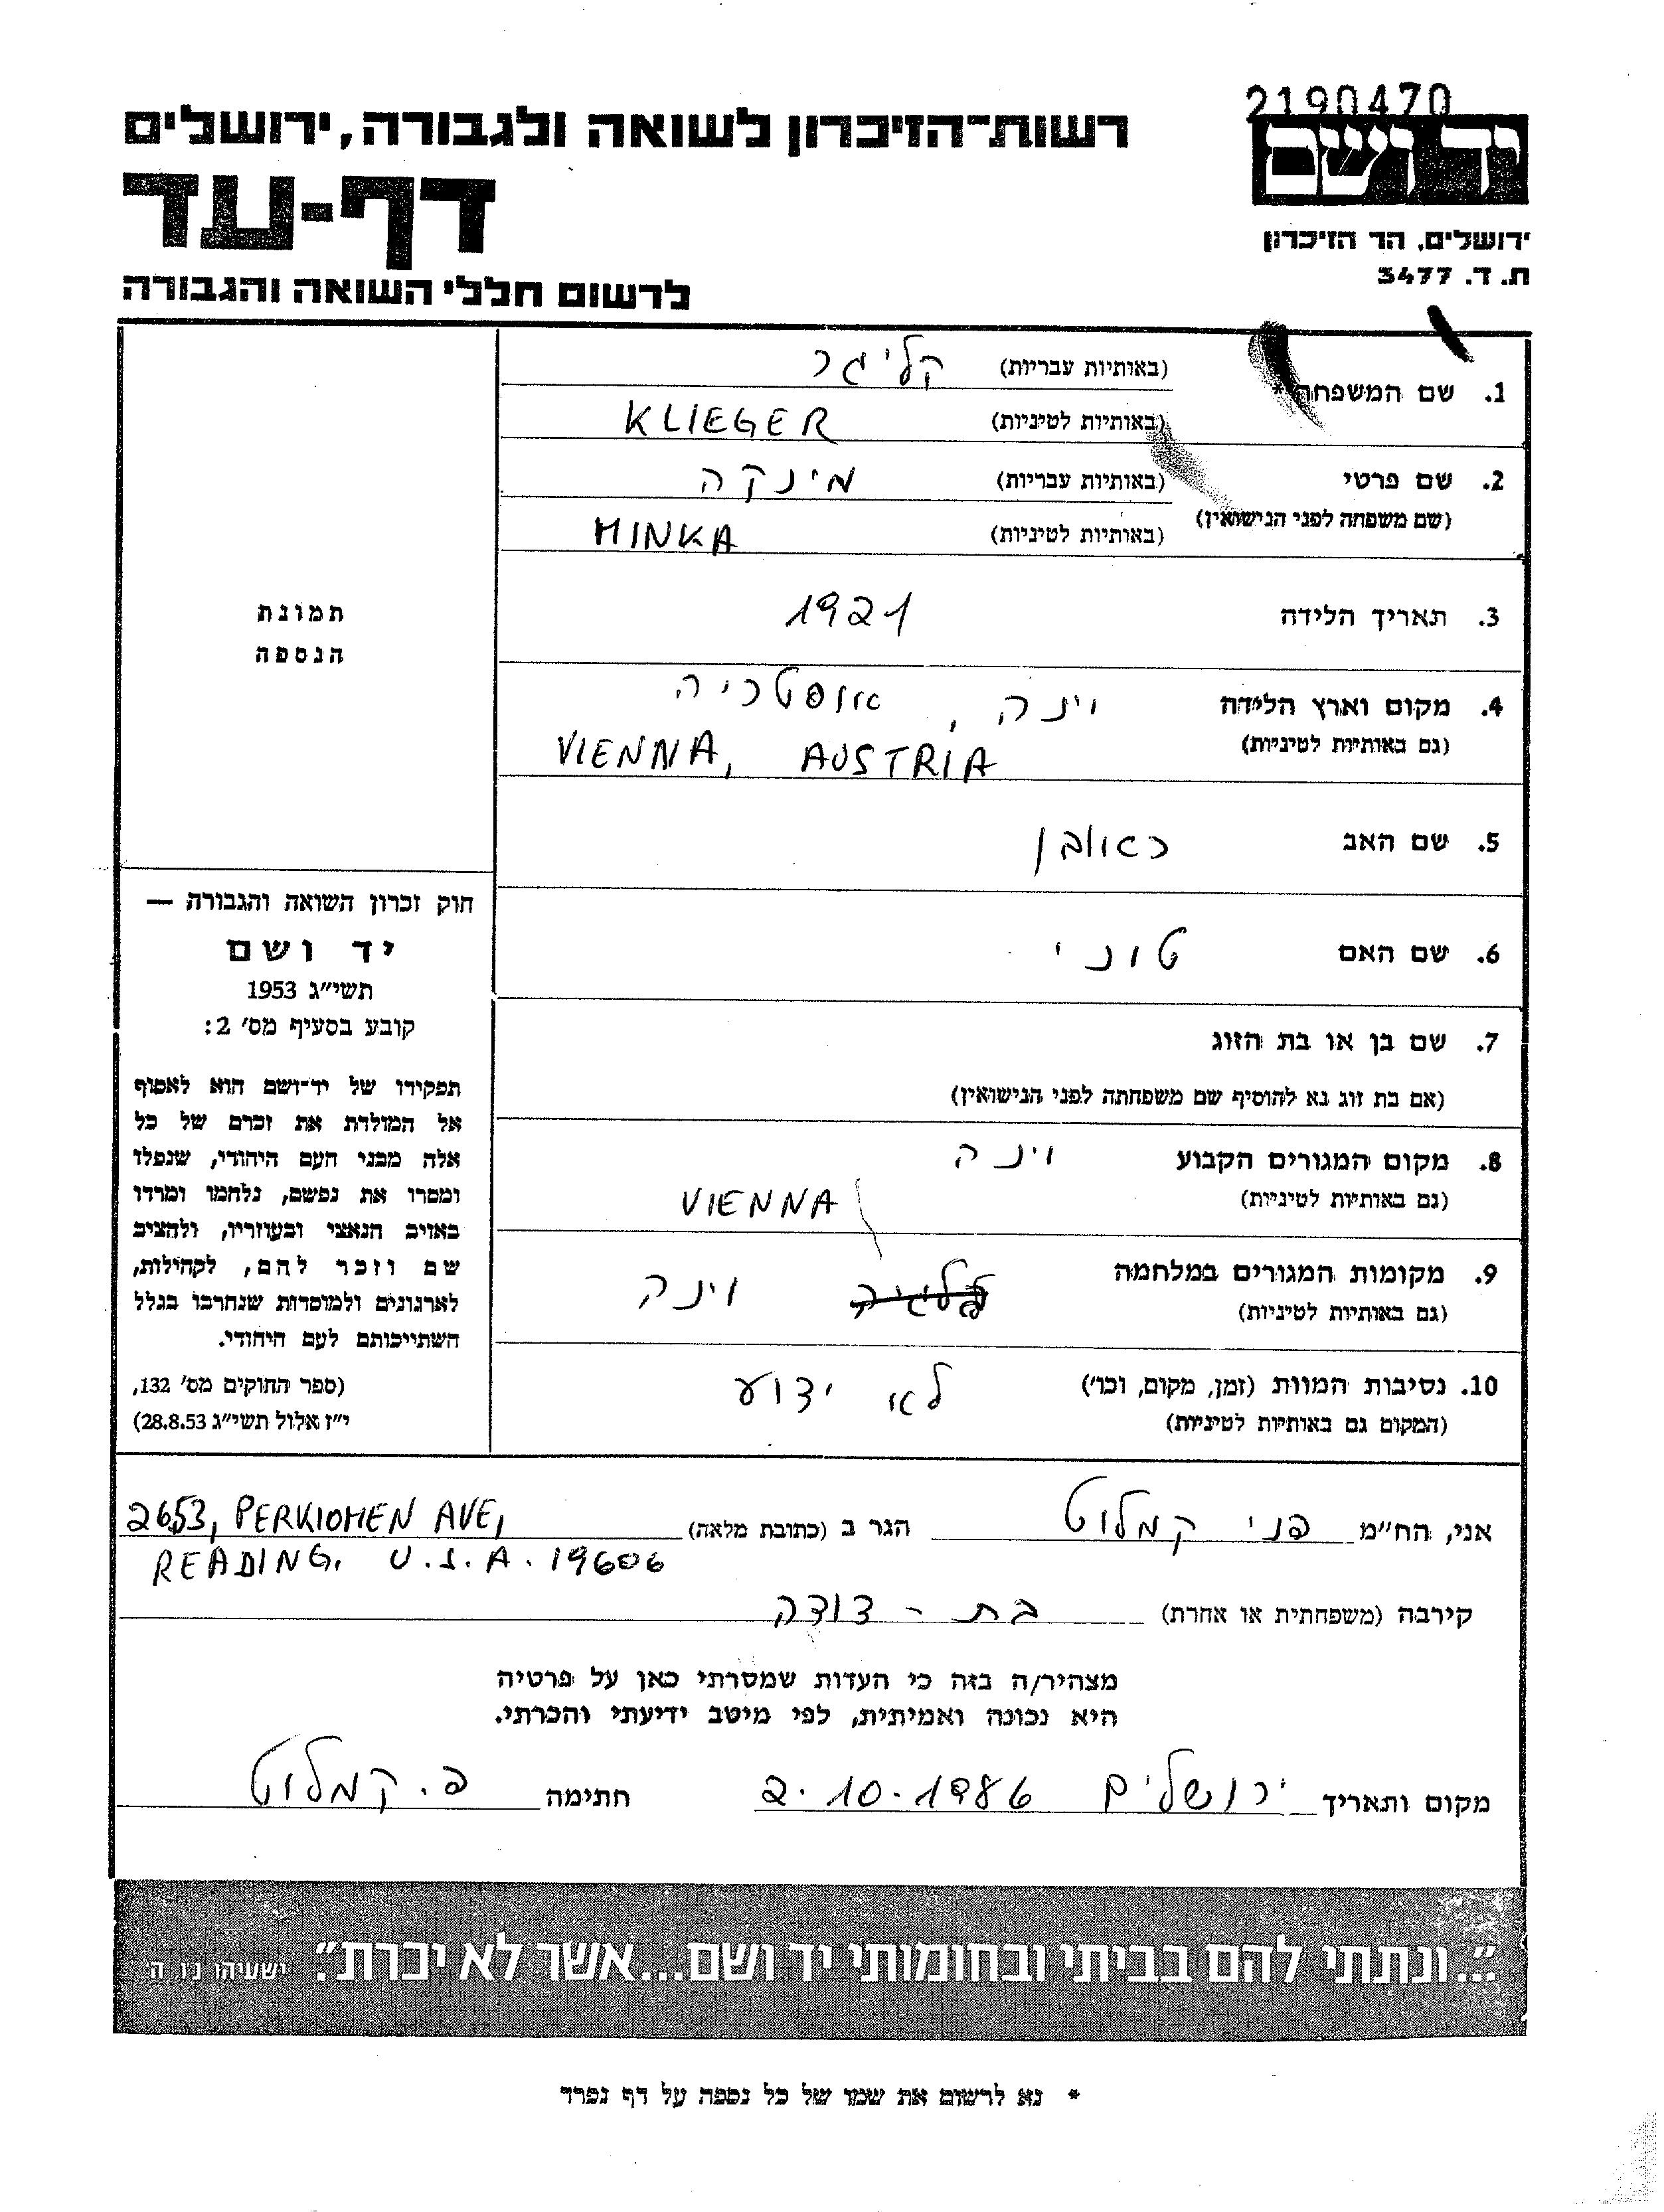 2190470
יד ושם
רשות-הזיכרון לשואה ולגבורה, ירושלים
דף-עד
ירושלים, הר הזיכרון
ת. ד. 3477
לרשום חללי השואה והגבורה
1. שם המשפחה* (באותיות עבריות) קליגר
(באותיות לטיניות) KLIEGER
2. שם פרטי (באותיות עבריות) מינקה
(שם משפחה לפני הנישואין) (באותיות לטיניות) MINKA
3. תאריך הלידה 1921
תמונת
הנספה
4. מקום וארץ הלידה וינה, אוסטריה
(גם באותיות לטיניות) VIENNA, AUSTRIA
5. שם האב ראובן
6. שם האם טוני
7. שם בן או בת הזוג
(אם בת זוג נא להוסיף שם משפחתה לפני הנישואין)
8. מקום המגורים הקבוע וינה
(גם באותיות לטיניות) VIENNA
9. מקומות המגורים במלחמה בלגיה וינה
(גם באותיות לטיניות)
10. נסיבות המוות (זמן, מקום, וכו') לא ידוע
(המקום גם באותיות לטיניות)
חוק זכרון השואה והגבורה —
יד ושם
תשי״ג 1953
קובע בסעיף מס' 2:
תפקידו של יד-ושם הוא לאסוף
אל המולדת את זכרם של כל
אלה מבני העם היהודי, שנפלו
ומסרו את נפשם, נלחמו ומרדו
באויב הנאצי ובעוזריו, ולהציב
שם וזכר להם, לקהילות,
לארגונים ולמוסדות שנחרבו בגלל
השתייכותם לעם היהודי.
(ספר החוקים מס' 132,
י״ז אלול תשי״ג 28.8.53)
אני, הח״מ פני קמלוט הגר ב (כתובת מלאה) 2653, PERKIOMEN AVE,
READING. U.S.A. 19606
קירבה (משפחתית או אחרת) בת - דודה
מצהיר/ה בזה כי העדות שמסרתי כאן על פרטיה
היא נכונה ואמיתית, לפי מיטב ידיעתי והכרתי.
מקום ותאריך ירושלים 2.10.1986 חתימה פ. קמלוט
״...ונתתי להם בביתי ובחומותי יד ושם...אשר לא יכרת״. ישעיהו נו ה
* נא לרשום את שמו של כל נספה על דף נפרד